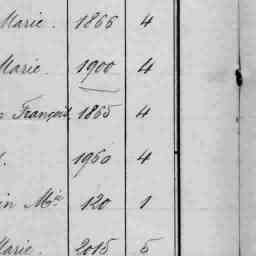 Marie. 1866 4
Marie. 1900 4
François 1865 4
1960 4
in Mie 120 1
Marie. 2015 5